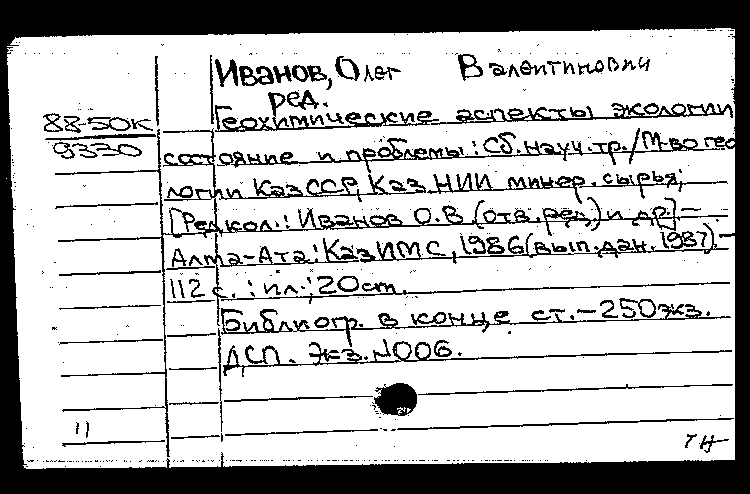 Иванов, Олег Валентинович
ред.
88-50К
9330
Геохимические аспекты экологии
состояние и проблемы: Сб. науч. тр./М-во гео
логии КазССР, Каз. НИИ минер. сырья;
[Редкол.: Иванов О.В. (отв. ред.) и др.] –
Алма-Ата: КазИМС, 1986 (вып. дан. 1987). –
112 с. : ил.; 20 см.
Библиогр. в конце ст. – 250 экз.
ДСП. Экз. N006.
11